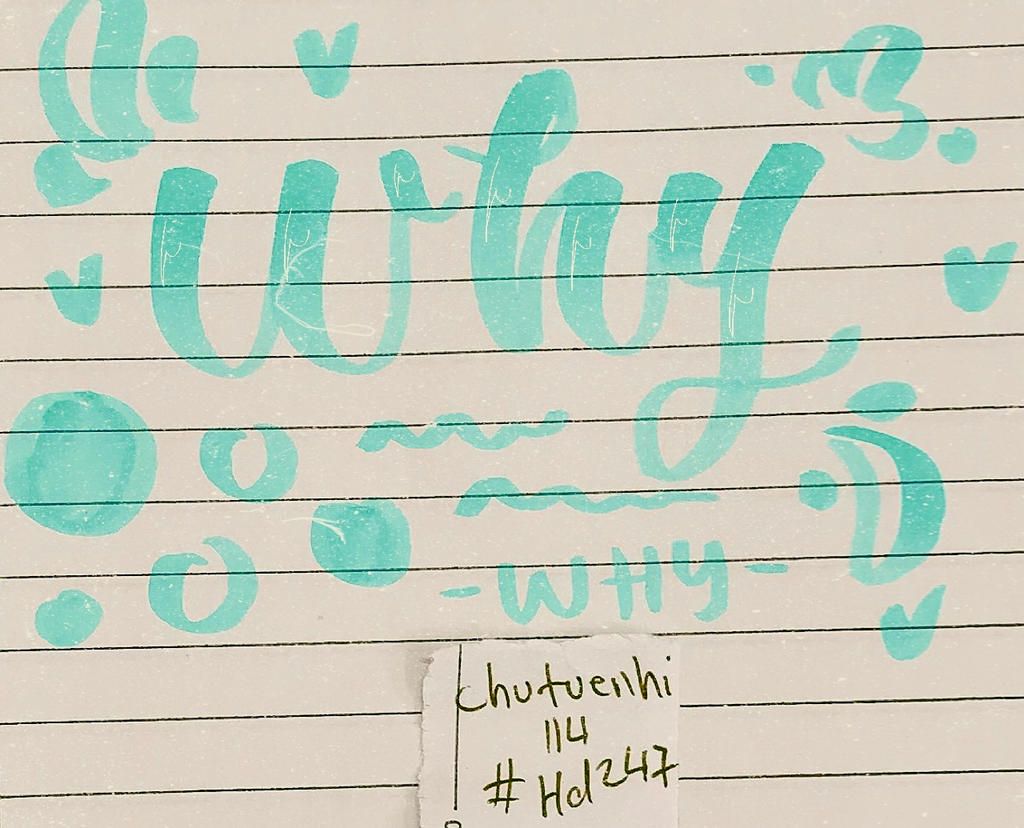 why
-WHY-
chutuenhi
114
#Hd247